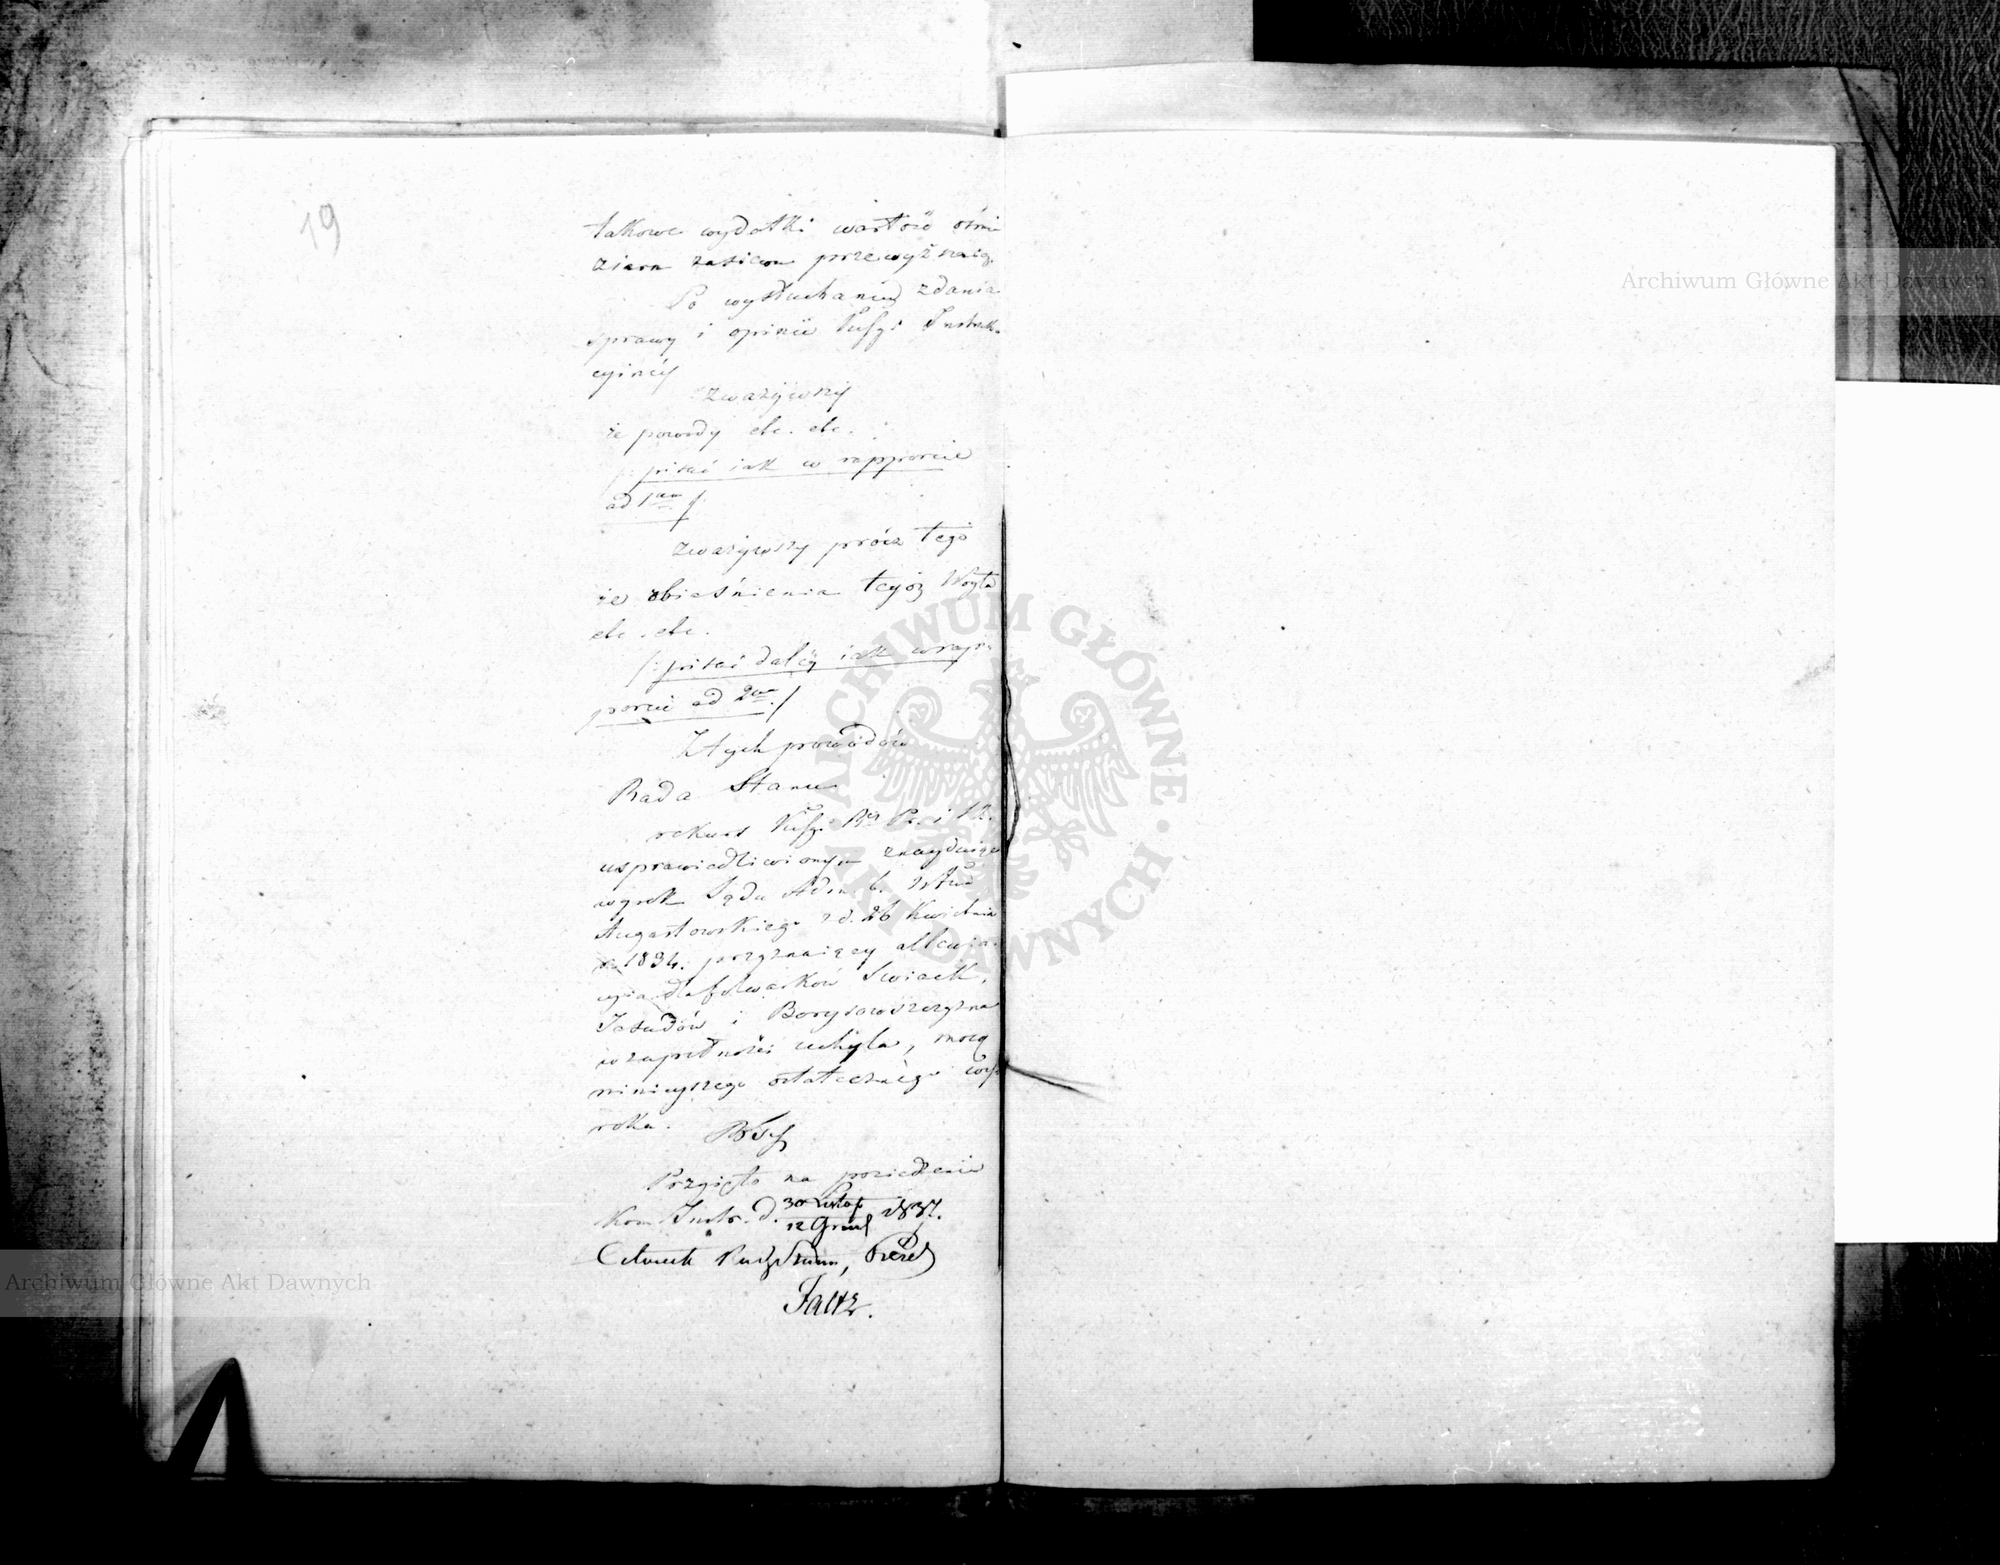 19
takowe wydatki wartość ośmi
ziarn zasiewu przewyższaią.
Po wysłuchaniu zdania
sprawy i opinii Instruk-
cyinéy
zważywszy
że powody etc. etc.
/: pisać iak w rapporcie
ad 1um /.
zważywszy prócz tego
że obiaśnienia teyóż Woyta
etc. etc.
/: pisać daléy iak w rap-
porcie ad 2um /
Z tych powodów
Rada Stanu
rekurs P. i S.
usprawiedliwionym znayduiąc
wyrok Sądu Adm. b. Wdztwa
Augustowskiego z d. 26 Kwietnia
1834. przyznaiący allewia-
cyia dla folwarków Swiack,
Jasudów i Borysowszczyzna
w zupełności uchyla, mocą
ninieyszego ostatecznégo wy-
roku.
Przyięto na posiedzeniu
Kom. Instr. d. 30 Listop / 12 Grud 1837.
Członek Radz Stanu, Prezes
Faltz.
Archiwum Główne Akt Dawnych
Archiwum Główne Akt Dawnych
ARCHIWUM GŁÓWNE · AKT DAWNYCH ·